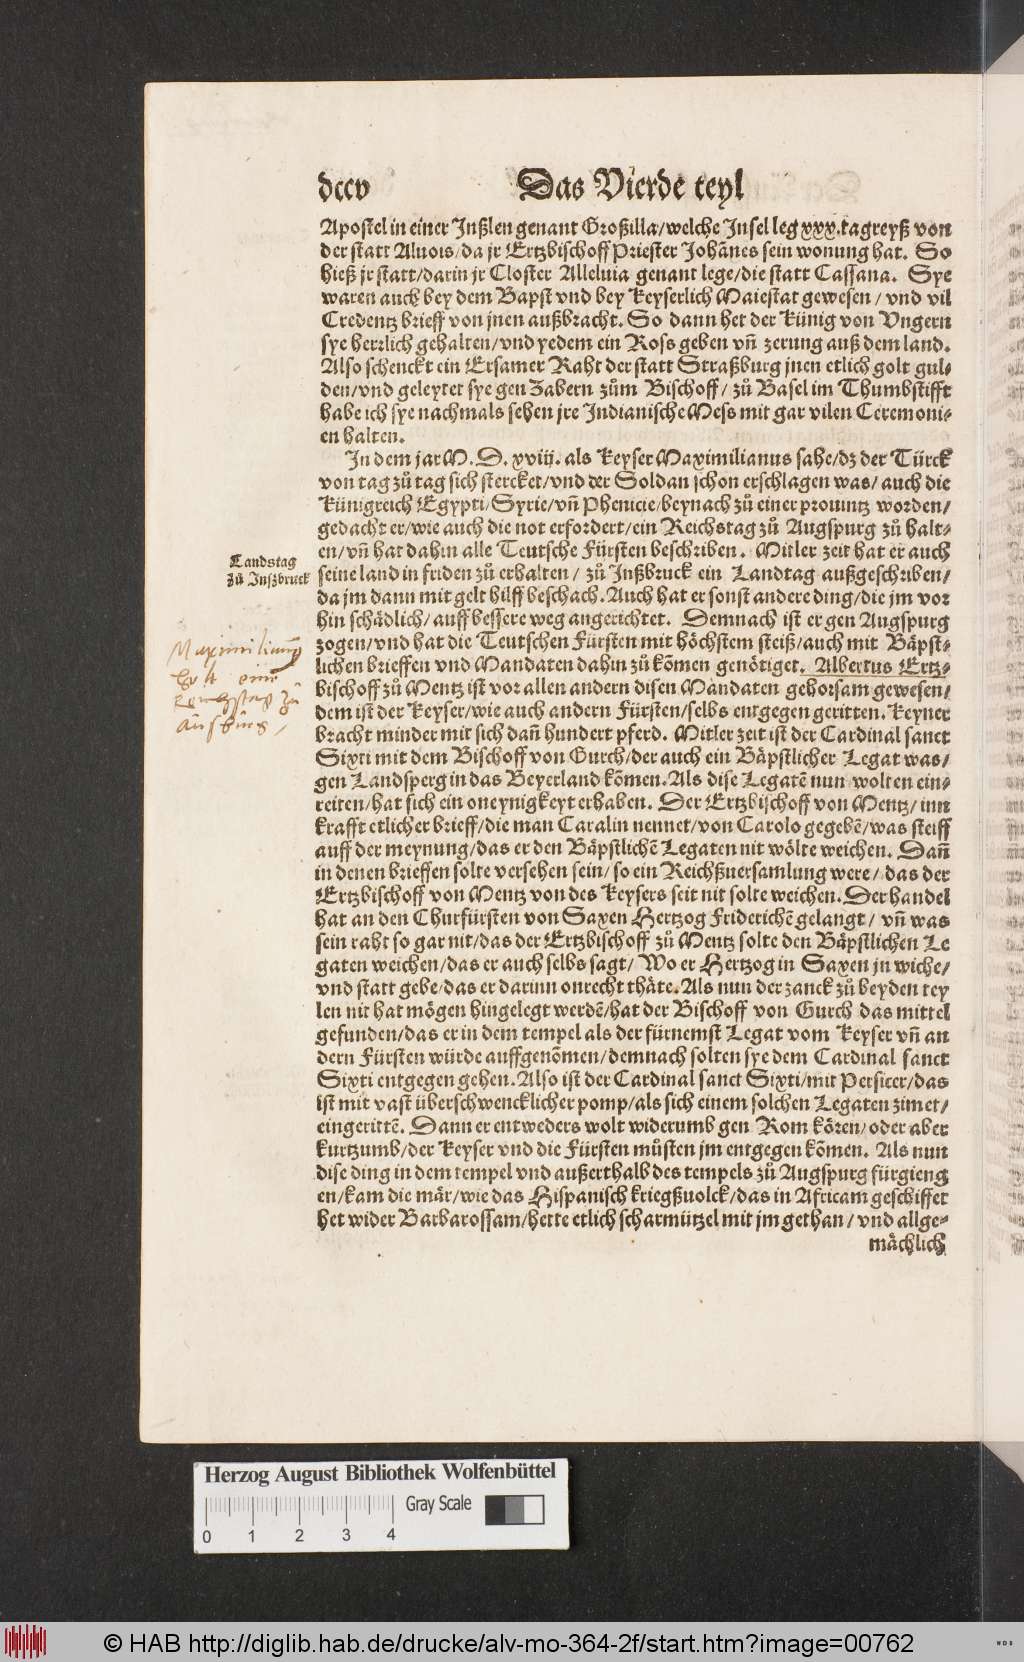 dccv Das Vierde teyl
Apostel in einer Jnßlen genant Großilla/welche Jnsel leg xxx.tagreyß von
der statt Aluois/da jr Ertzbischoff Priester Johānes sein wonung hat. So
hieß jr statt/darin jr Closter Alleluia genant lege/die statt Cassana. Sye
waren auch bey dem Bapst vnd bey Keyserlich Maiestat gewesen/ vnd vil
Credentz brieff von jnen außbracht. So dann het der Künig von Vngern
sye herrlich gehalten/vnd yedem ein Ross geben vn̄ zerung auß dem land.
Also schenckt ein Ersamer Raht der statt Straßburg jnen etlich golt gul⸗
den/vnd geleytet sye gen Zabern zům Bischoff/ zů Basel im Thumbstifft
habe ich sye nachmals sehen jre Jndianische Mess mit gar vilen Ceremoni⸗
en halten.
Jn dem jar M. D. xviij. als Keyser Maximilianus sahe/dz der Türck
von tag zů tag sich stercket/vnd der Soldan schon erschlagen was/ auch die
Künigreich Egypti/Syrie/vn̄ Phenicie/beynach zů einer prouintz worden/
gedacht er/wie auch die not erfordert/ein Reichstag zů Augspurg zů halt⸗
en/vn̄ hat dahin alle Teutsche Fürsten beschriben. Mitler zeit hat er auch
Landstag
zů Jnßbruck
seine land in friden zů erhalten/ zů Jnßbruck ein Landtag außgeschriben/
da jm dann mit gelt hilff beschach. Auch hat er sonst andere ding/die jm vor
hin schädlich/auff bessere weg angerichtet. Demnach ist er gen Augspurg
zogen/vnd hat die Teutschen Fürsten mit höchstem fleiß/auch mit Bäpst⸗
lichen brieffen vnd Mandaten dahin zů kōmen genötiget. Albertus Ertz⸗
Maximilianus
helt einē
Reichstag zů
Ausburg/
bischoff zů Mentz ist vor allen andern disen Mandaten gehorsam gewesen/
dem ist der Keyser/wie auch andern Fürsten/selbs entgegen geritten. Keyner
bracht minder mit sich dan̄ hundert pferd. Mitler zeit ist der Cardinal sanct
Sixti mit dem Bischoff von Gurch/der auch ein Bäpstlicher Legat was/
gen Landsperg in das Beyerland kōmen. Als dise Legatē nun wolten ein⸗
reiten/hat sich ein oneynigkeyt erhaben. Der Ertzbischoff von Mentz/ inn
krafft etlicher brieff/die man Caralin nennet/von Carolo gegebē/was steiff
auff der meynung/das er den Bäpstlichē Legaten nit wölte weichen. Dan̄
in denen brieffen solte versehen sein/ so ein Reichßuersamlung were/ das der
Ertzbischoff von Mentz von des Keysers seit nit solte weichen. Der handel
hat an den Churfürsten von Saxen Hertzog Friderichē gelangt/ vn̄ was
sein raht so gar nit/das der Ertzbischoff zů Mentz solte den Bäpstlichen Le
gaten weichen/das er auch selbs sagt/ Wo er Hertzog in Saxen jn wiche/
vnd statt gebe/das er darinn onrecht thäte. Als nun der zanck zů beyden tey
len nit hat mögen hingelegt werdē/hat der Bischoff von Gurch das mittel
gefunden/das er in dem tempel als der fürnemst Legat vom Keyser vn̄ an
dern Fürsten würde auffgenōmen/demnach solten sye dem Cardinal sanct
Sixti entgegen gehen. Also ist der Cardinal sanct Sixti/mit Persicer/das
ist mit vast überschwencklicher pomp/als sich einem solchen Legaten zimet/
eingerittē. Dann er entweders wolt widerumb gen Rom kören/oder aber
kurtzumb/der Keyser vnd die Fürsten můsten jm entgegen kōmen. Als nun
dise ding in dem tempel vnd außerthalb des tempels zů Augspurg fürgieng
en/kam die mär/wie das Hispanisch kriegßuolck/das in Africam geschiffet
het wider Barbarossam/hette etlich scharmützel mit jm gethan/ vnd allge⸗
mächlich
Herzog August Bibliothek Wolfenbüttel
Gray Scale
0 1 2 3 4
© HAB http://diglib.hab.de/drucke/alv-mo-364-2f/start.htm?image=00762